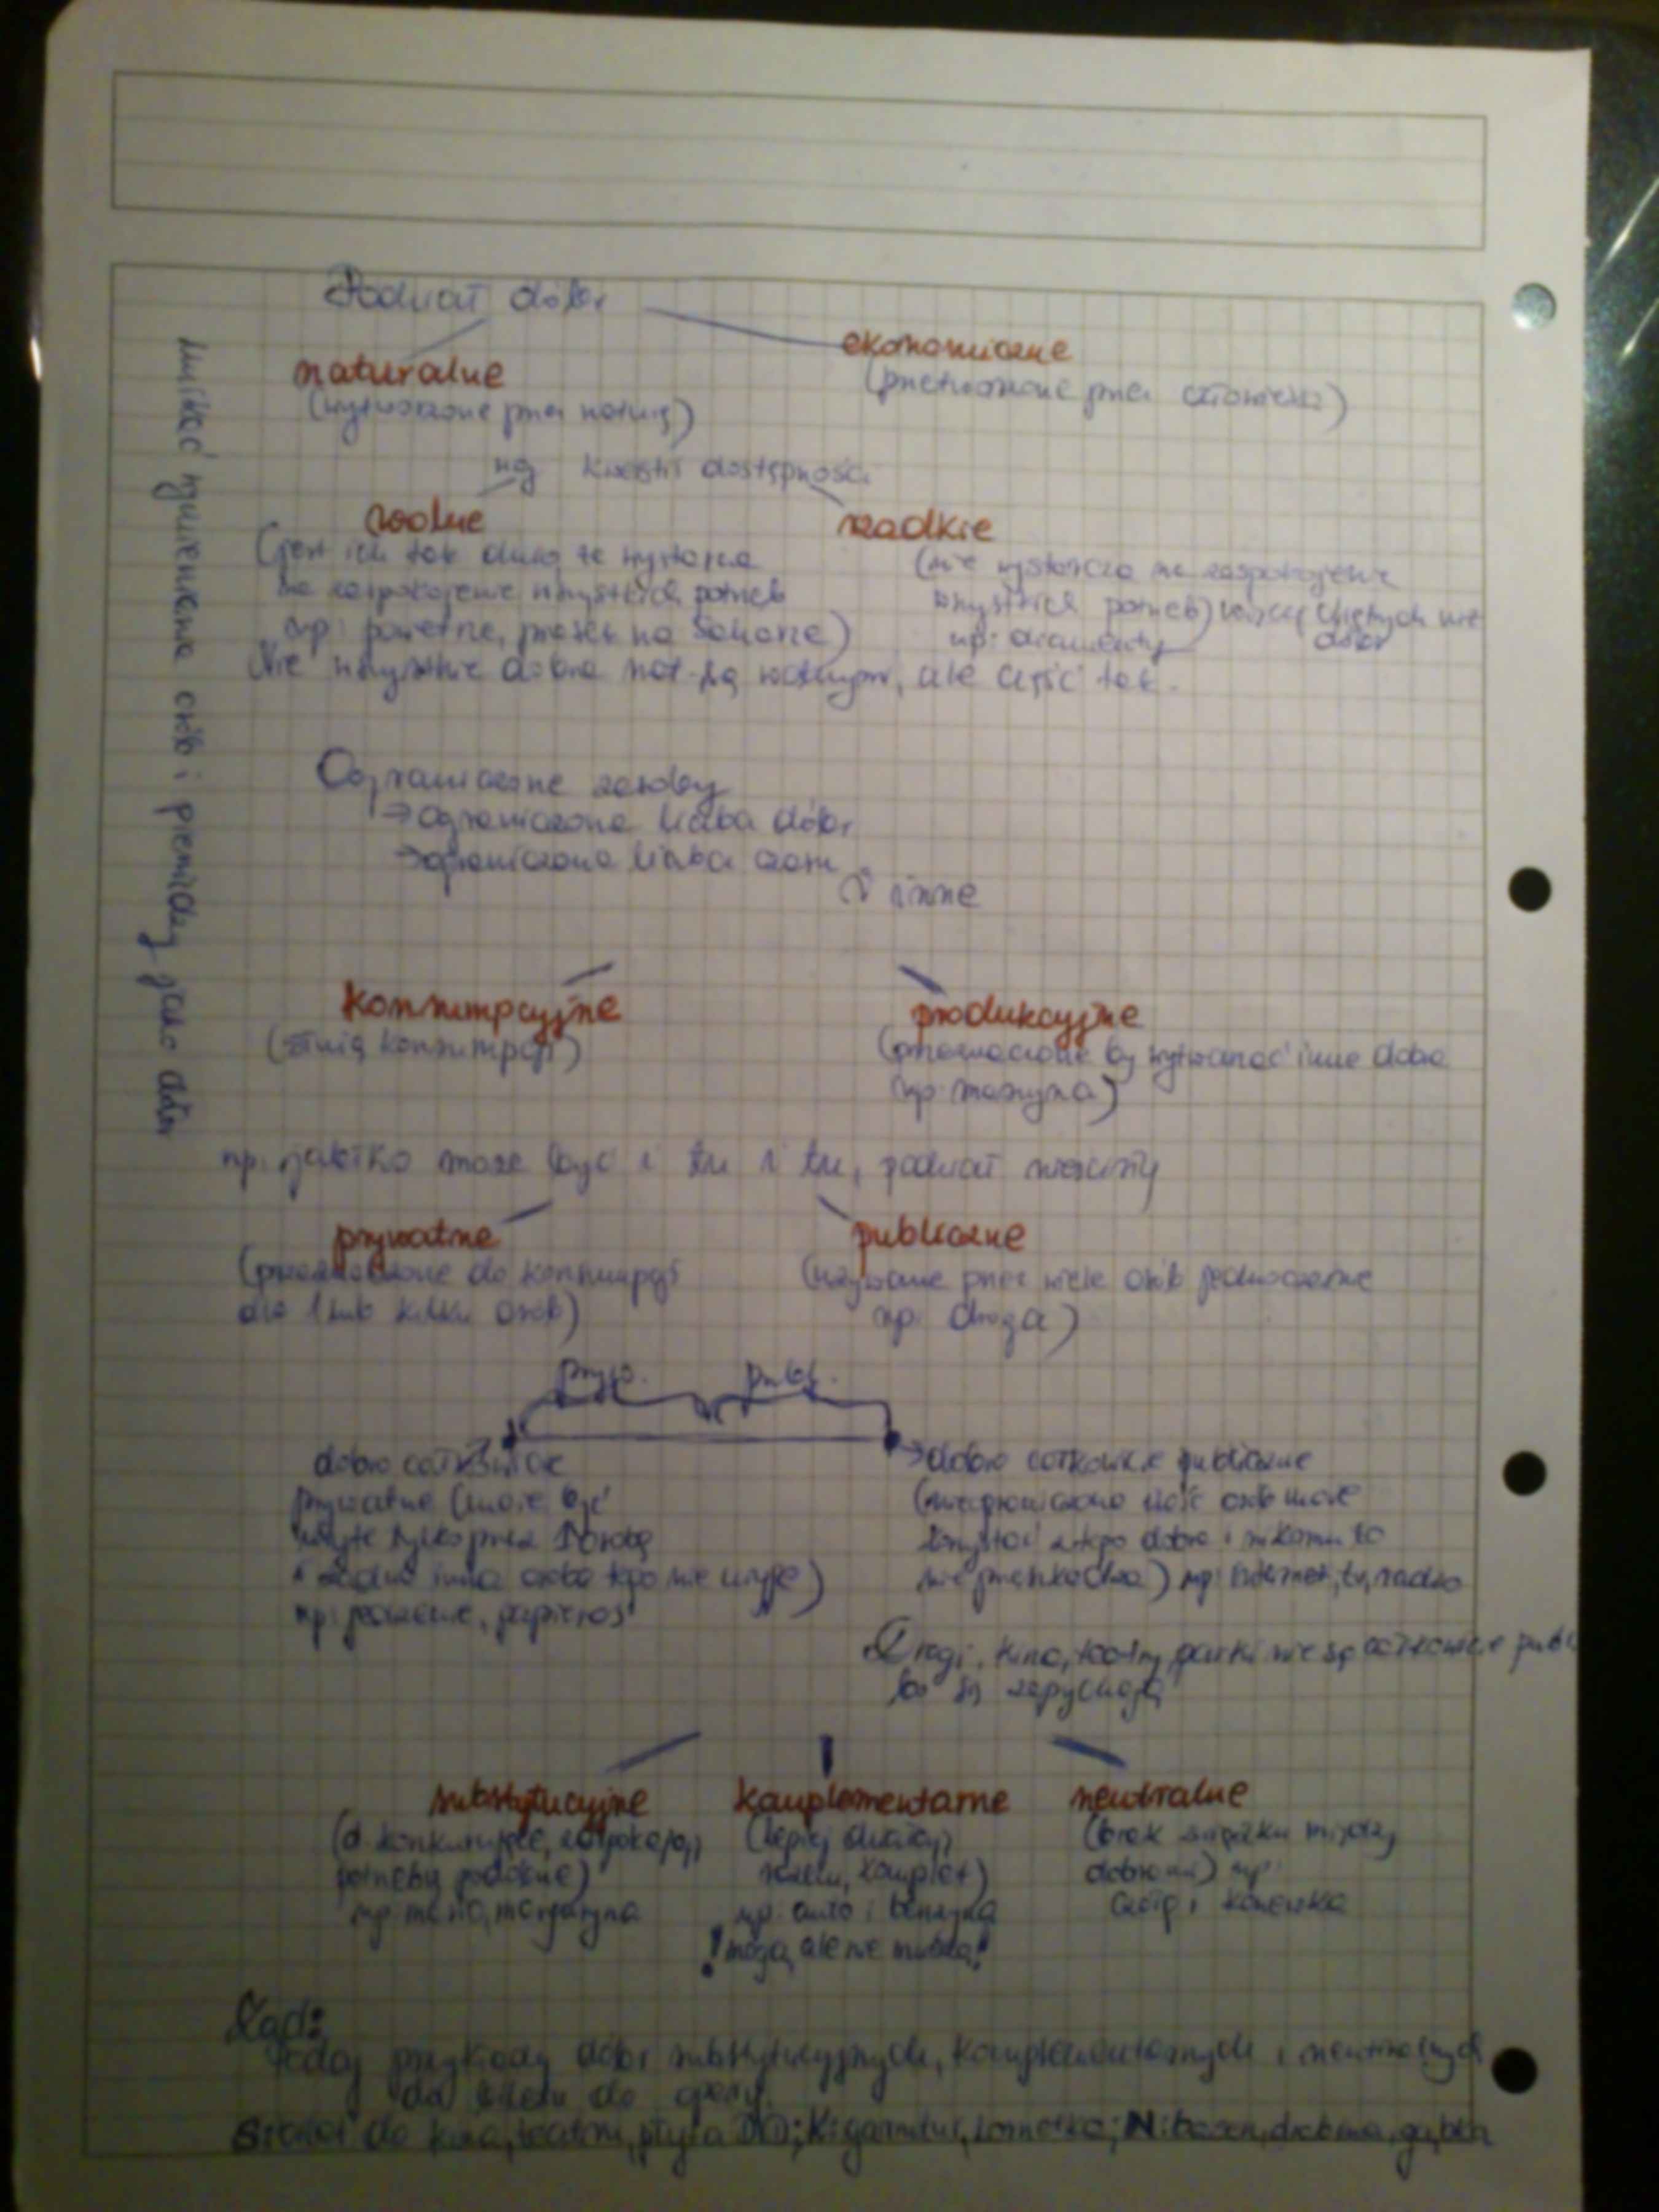 Podział dóbr
naturalne
(wytworzone przez naturę)
ekonomiczne
(przetworzone przez człowieka)
wg kwestii dostępności
wolne
(jest ich tak dużo że wystarcza
na zaspokojenie wszystkich potrzeb
np: powietrze, piasek na Saharze)
rzadkie
(nie wystarcza na zaspokojenie
wszystkich potrzeb) więcej chętnych niż
np: diamenty dóbr
Nie wszystkie dobra nat. są wolnymi, ale część tak.
Ograniczone zasoby
→ ograniczona liczba dóbr
→ ograniczona liczba czasu
i inne
konsumpcyjne
(służą konsumpcji)
produkcyjne
(przeznaczone by wytwarzać inne dobra
np: maszyna)
np: jabłko może być i tu i tu, podział nieścisły
prywatne
(przeznaczone do konsumpcji
dla 1 lub kilku osób)
publiczne
(używane przez wiele osób jednocześnie
np: droga)
pryw. publ.
dobro całkowicie
prywatne (może być
użyte tylko przez 1 osobę
i żadna inna osoba tego nie użyje)
np: jedzenie, papieros
→ dobro całkowicie publiczne
(nieograniczona ilość osób może
korzystać z tego dobra i nikomu to
nie przeszkadza) np: internet, tv, radio
Drogi, kina, teatry, parki nie są całkowicie publ
bo się zapychają
substytucyjne
(d. konkurujące, zaspokajają
potrzeby podobne)
np: masło, margaryna
komplementarne
(lepiej służą
razem, komplet)
np: auto i benzyna
! mogą ale nie muszą!
neutralne
(brak związku między
dobrami) np:
i konewka
Zad:
Podaj przykłady dóbr substytucyjnych, komplementarnych i neutralnych
do biletu do opery.
S: bilet do kina, teatru, płyta DVD; K: garnitur, lornetka; N: basen, drabina, gąbka
umiejętność wymieniania osób i pieniędzy jako dóbr